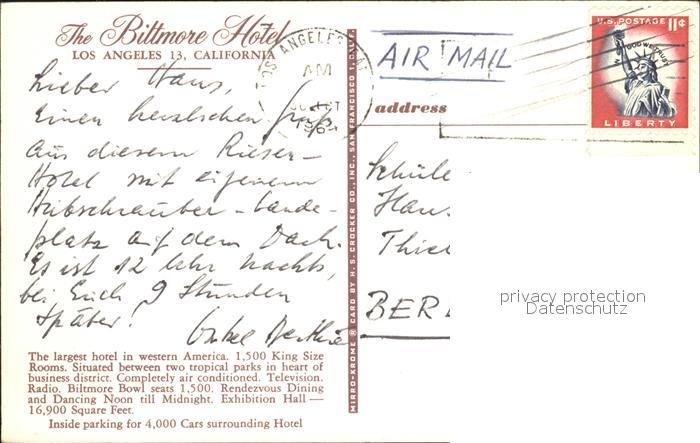 The Biltmore Hotel
LOS ANGELES 13, CALIFORNIA
LOS ANGELES
AM
AIR MAIL
U.S. POSTAGE 11¢
IN GOD WE TRUST
LIBERTY
address
Lieber Hans,
Einen herzlichen Gruß
aus diesem Riesen-
Hotel mit eigenem
Hubschrauber-Lande-
platz auf dem Dach.
Es ist 12 Uhr nachts,
bei Euch 9 Stunden
später!
Onkel
Schüle
Han
Thie
BER
MIRRO-KROME ® CARD BY H. S. CROCKER CO., INC., SAN FRANCISCO 1, CALIF.
privacy protection
Datenschutz
The largest hotel in western America. 1,500 King Size
Rooms. Situated between two tropical parks in heart of
business district. Completely air conditioned. Television.
Radio. Biltmore Bowl seats 1,500. Rendezvous Dining
and Dancing Noon till Midnight. Exhibition Hall —
16,900 Square Feet.
Inside parking for 4,000 Cars surrounding Hotel